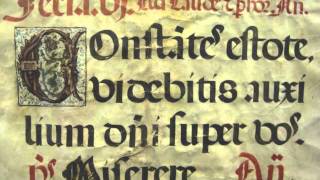 Feria An.
COnstātes estote,
videbitis auxi
lium dñi super vos.
ps. Miserere. Añ